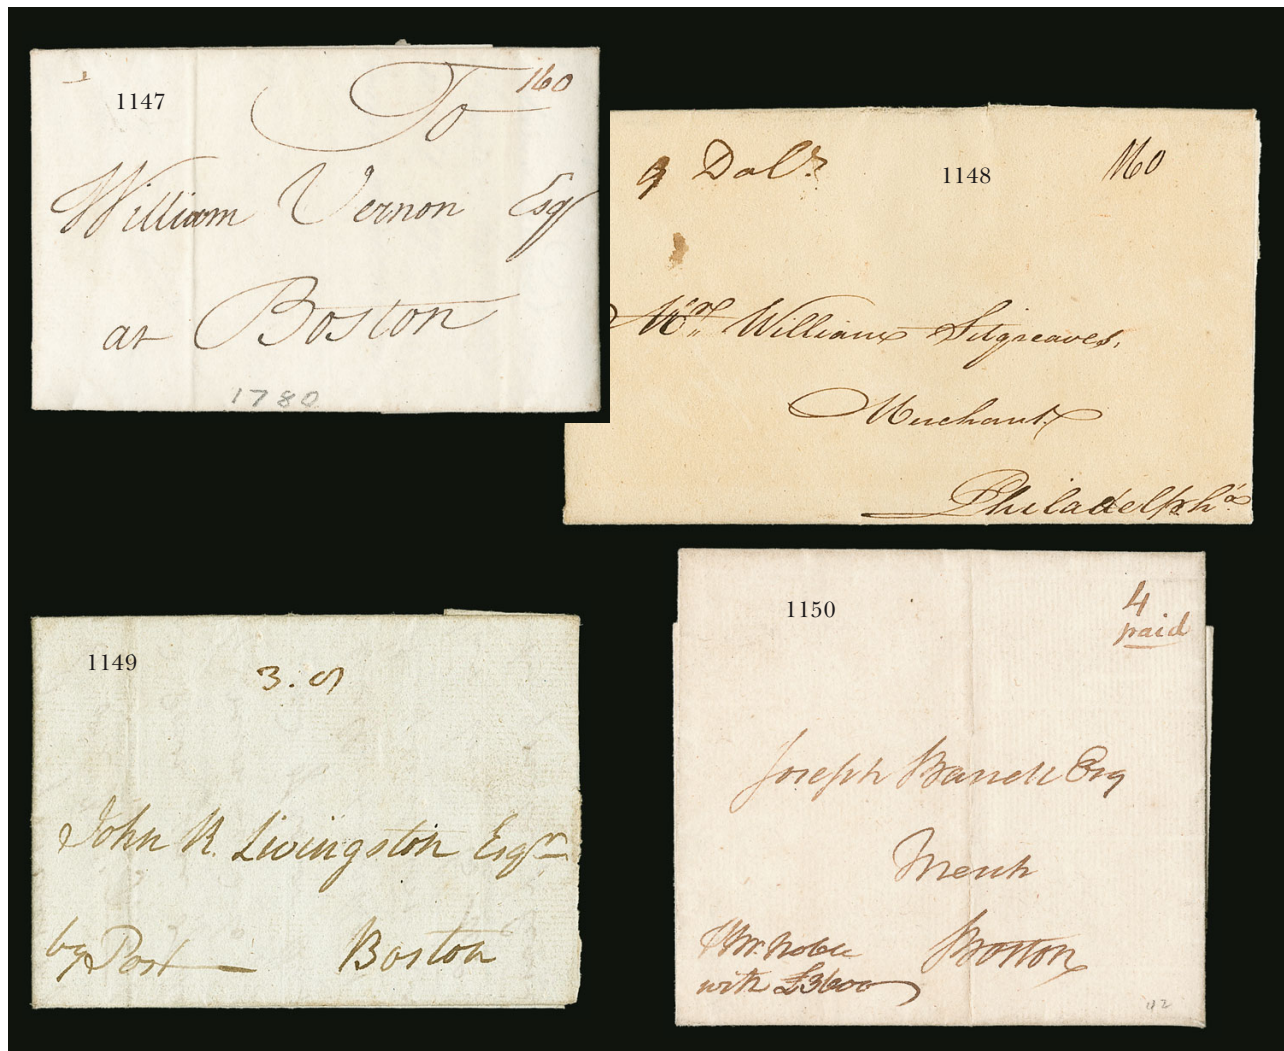 1147
160
To
William Vernon Esqr
at Boston
1780
9 Dolrs
1148
160
Mr. William Sitgreaves,
Merchant
Philadelpha
1149
3.
John R. Livingston Esqr
by Post Boston
1150
4
paid
Joseph Barrell Esq
Merch
Boston
Mr. Noble
with £3600
112